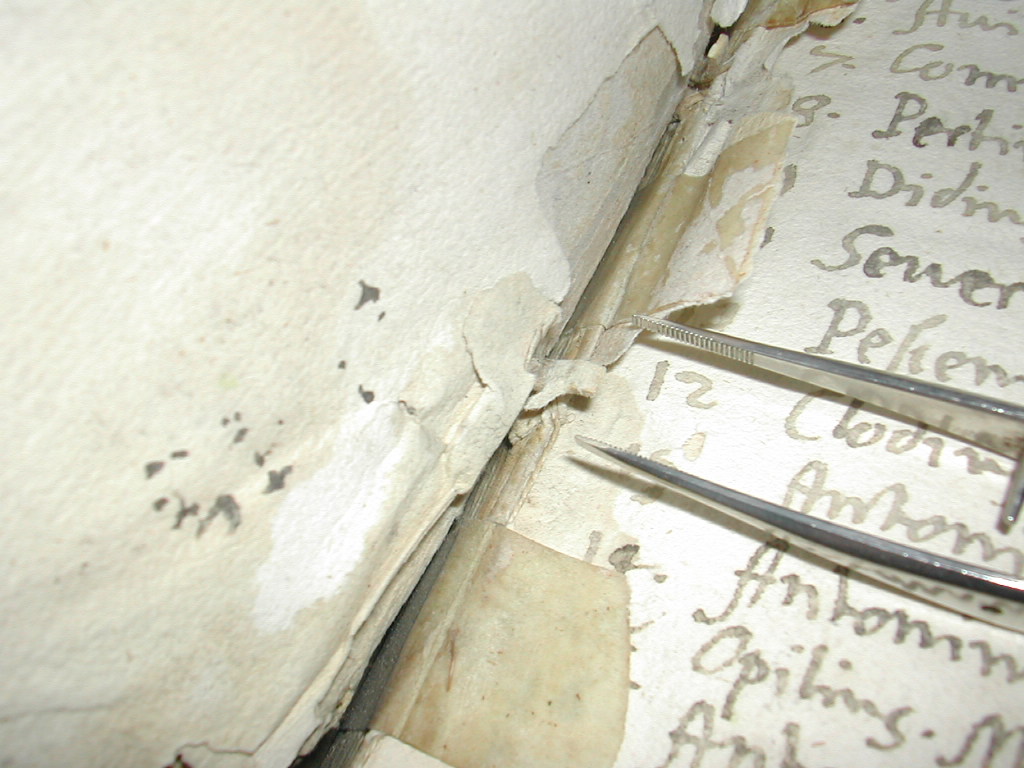 7. Com
8. Perti
Didin
Seuer
Pescen
12 Clodin
Antoni
14. Antonin
Opilius. M
Ant